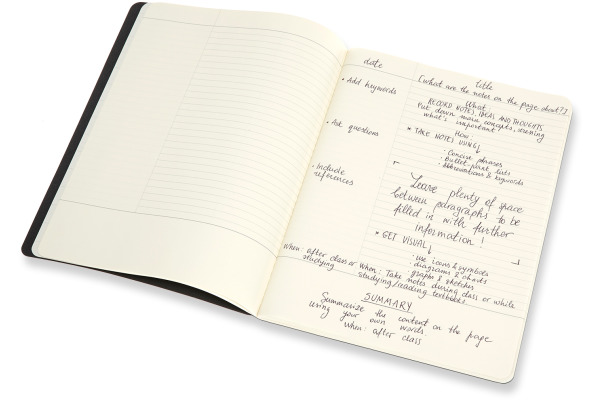 date
title
(what are the notes on the page about?)
• Add keywords
• Ask questions
• Include
references
When: after class or
studying
What
RECORD NOTES, IDEAS AND THOUGHTS
Put down main concepts, seeing
what's important
How:
* TAKE NOTES USING
• Concise phrases
• Bullet point lists
• Abbreviations & keywords
Leave plenty of space
between paragraphs to be
filled in with further
information!
* GET VISUAL
• use icons & symbols
• diagrams & charts
• graphs & sketches
When: Take notes during class or while
studying/reading textbooks
SUMMARY
Summarise the content on the page
using your own words.
When: after class